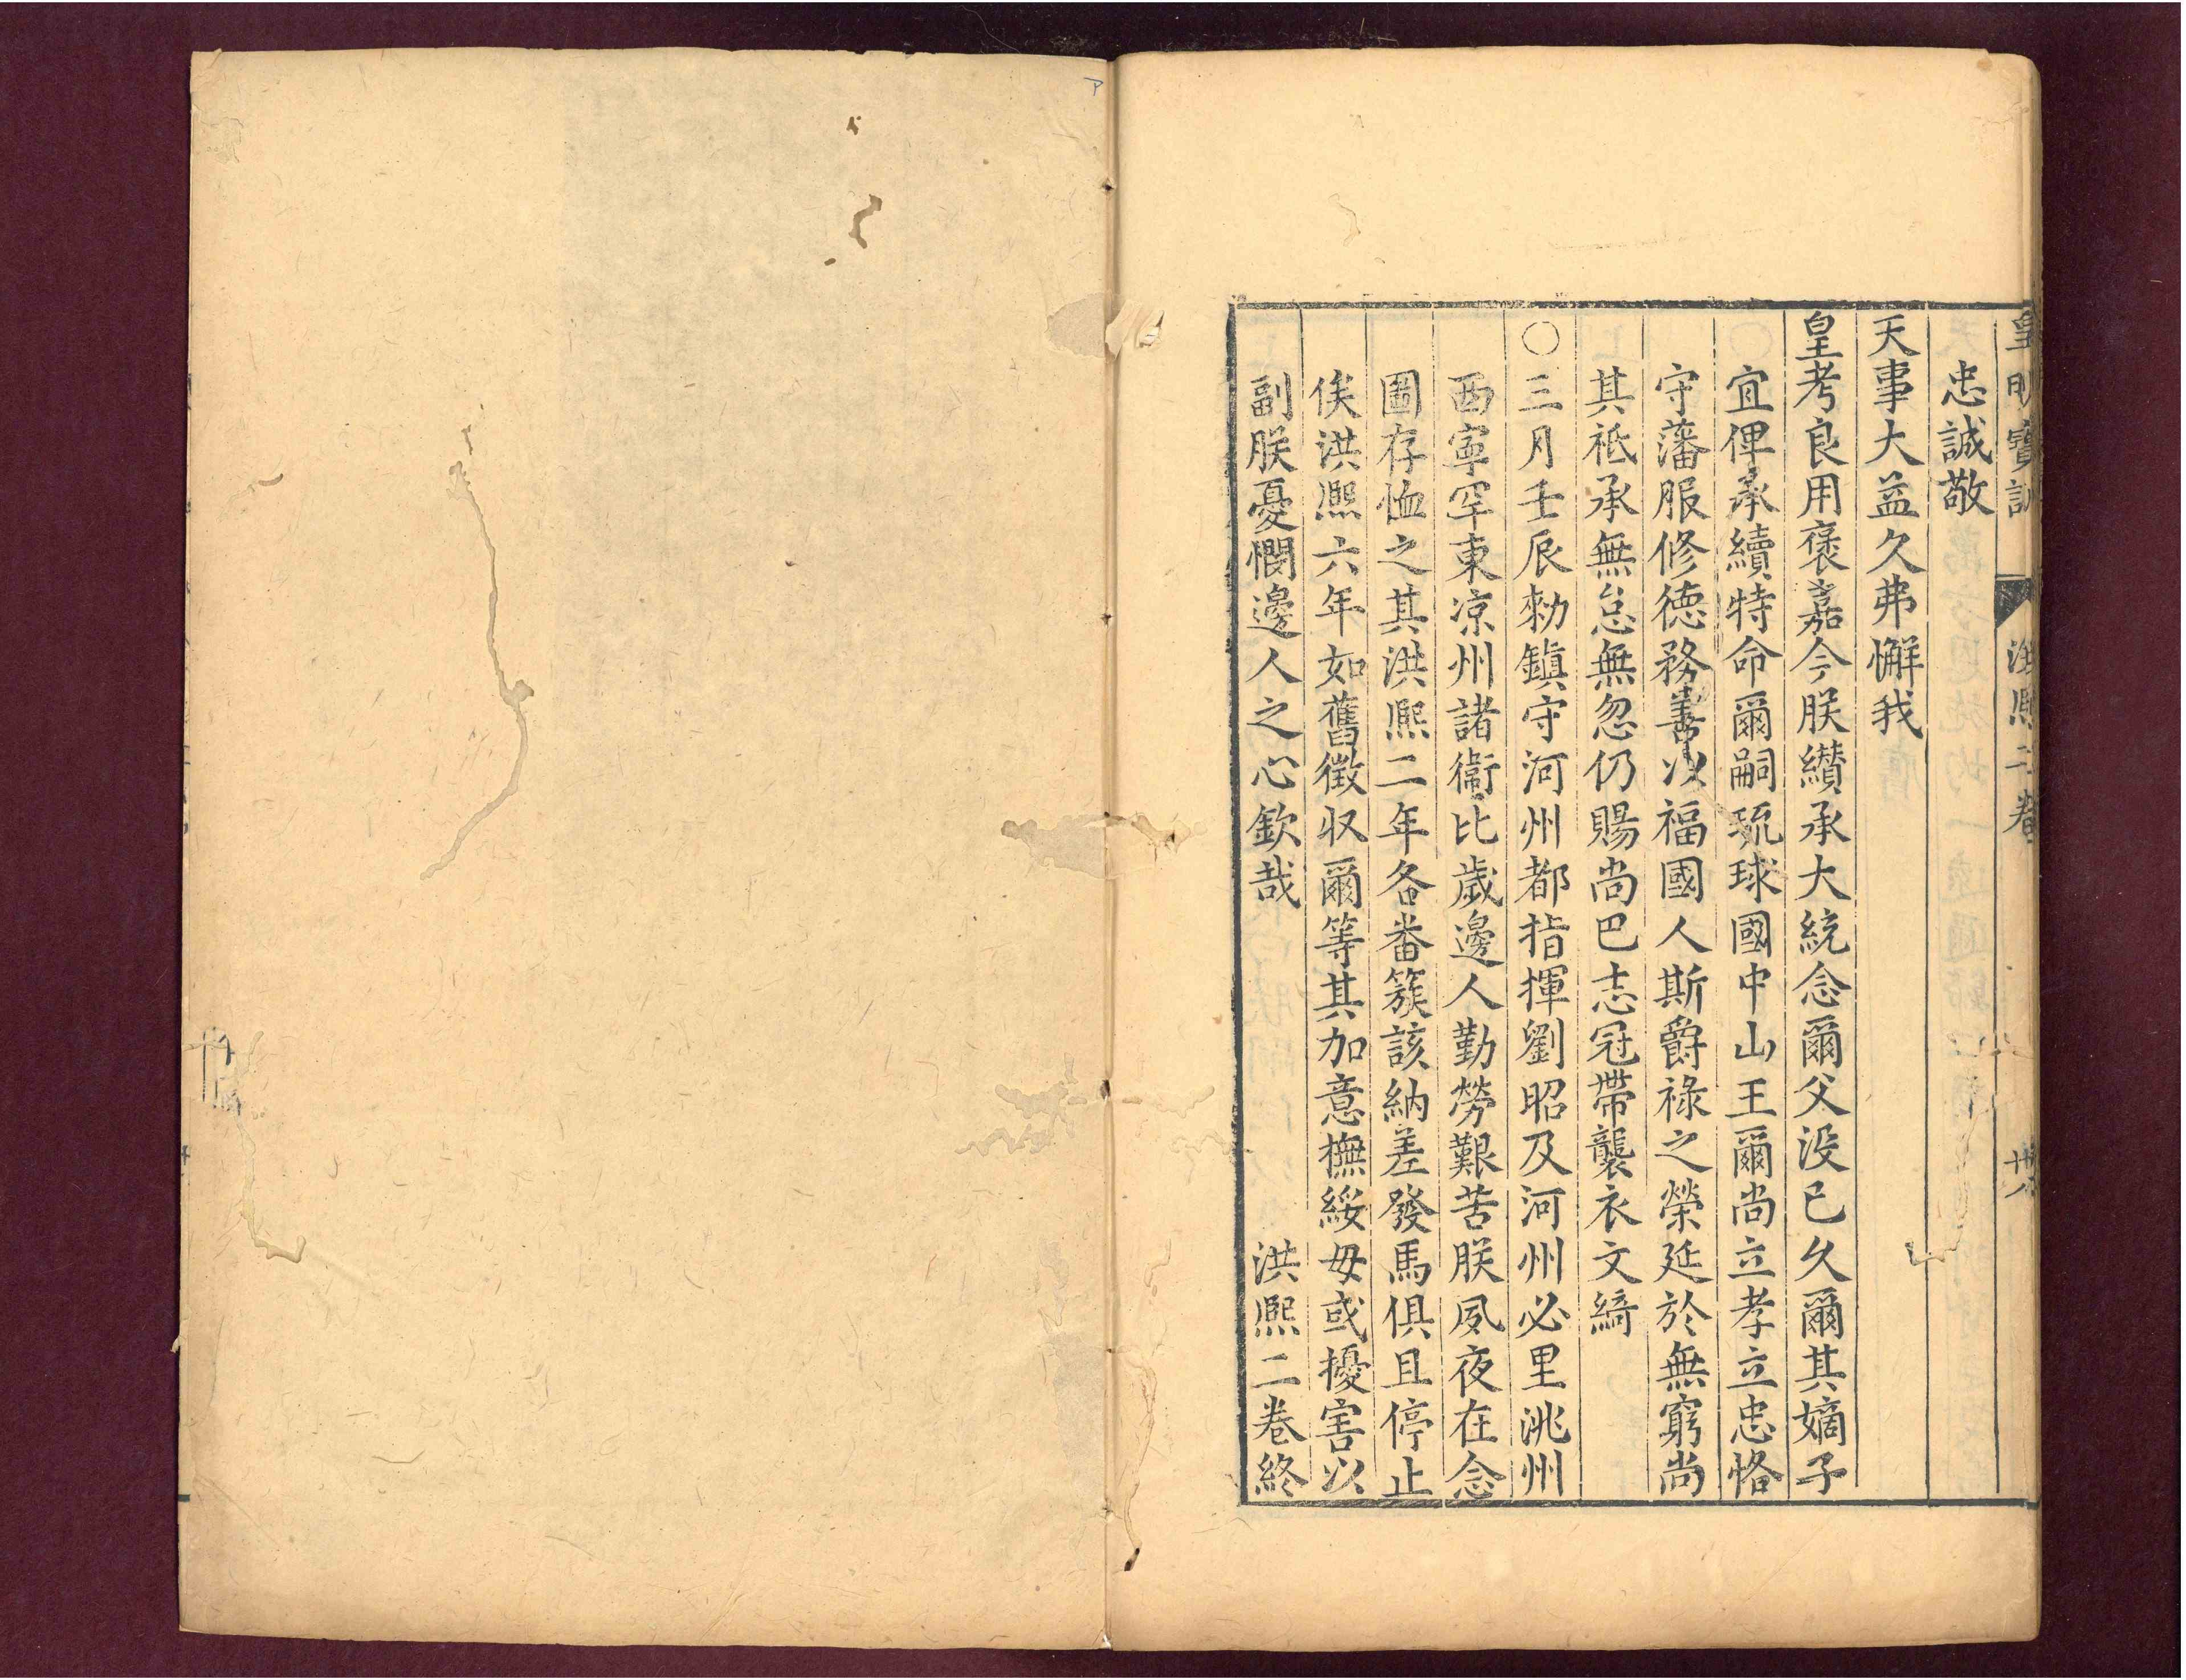 皇明寶訓 洪熙二卷
忠誠敬
天事大益久弗懈我
皇考良用褒嘉今朕纘承大統念爾父没已久爾其嫡子
宜俾承續特命爾嗣琉球國中山王爾尚立孝立忠恪
守藩服修德務善以福國人斯爵祿之榮延於無窮尚
其祗承無怠無忽仍賜尚巴志冠帶襲衣文綺
○三月壬辰勑鎮守河州都指揮劉昭及河州必里洮州
西寧罕東凉州諸衞比歲邊人勤勞艱苦朕夙夜在念
圖存恤之其洪熙二年各番簇該納差發馬俱且停止
俟洪熙六年如舊徵收爾等其加意撫綏毋或擾害以
副朕憂憫邊人之心欽哉 洪熙二卷終